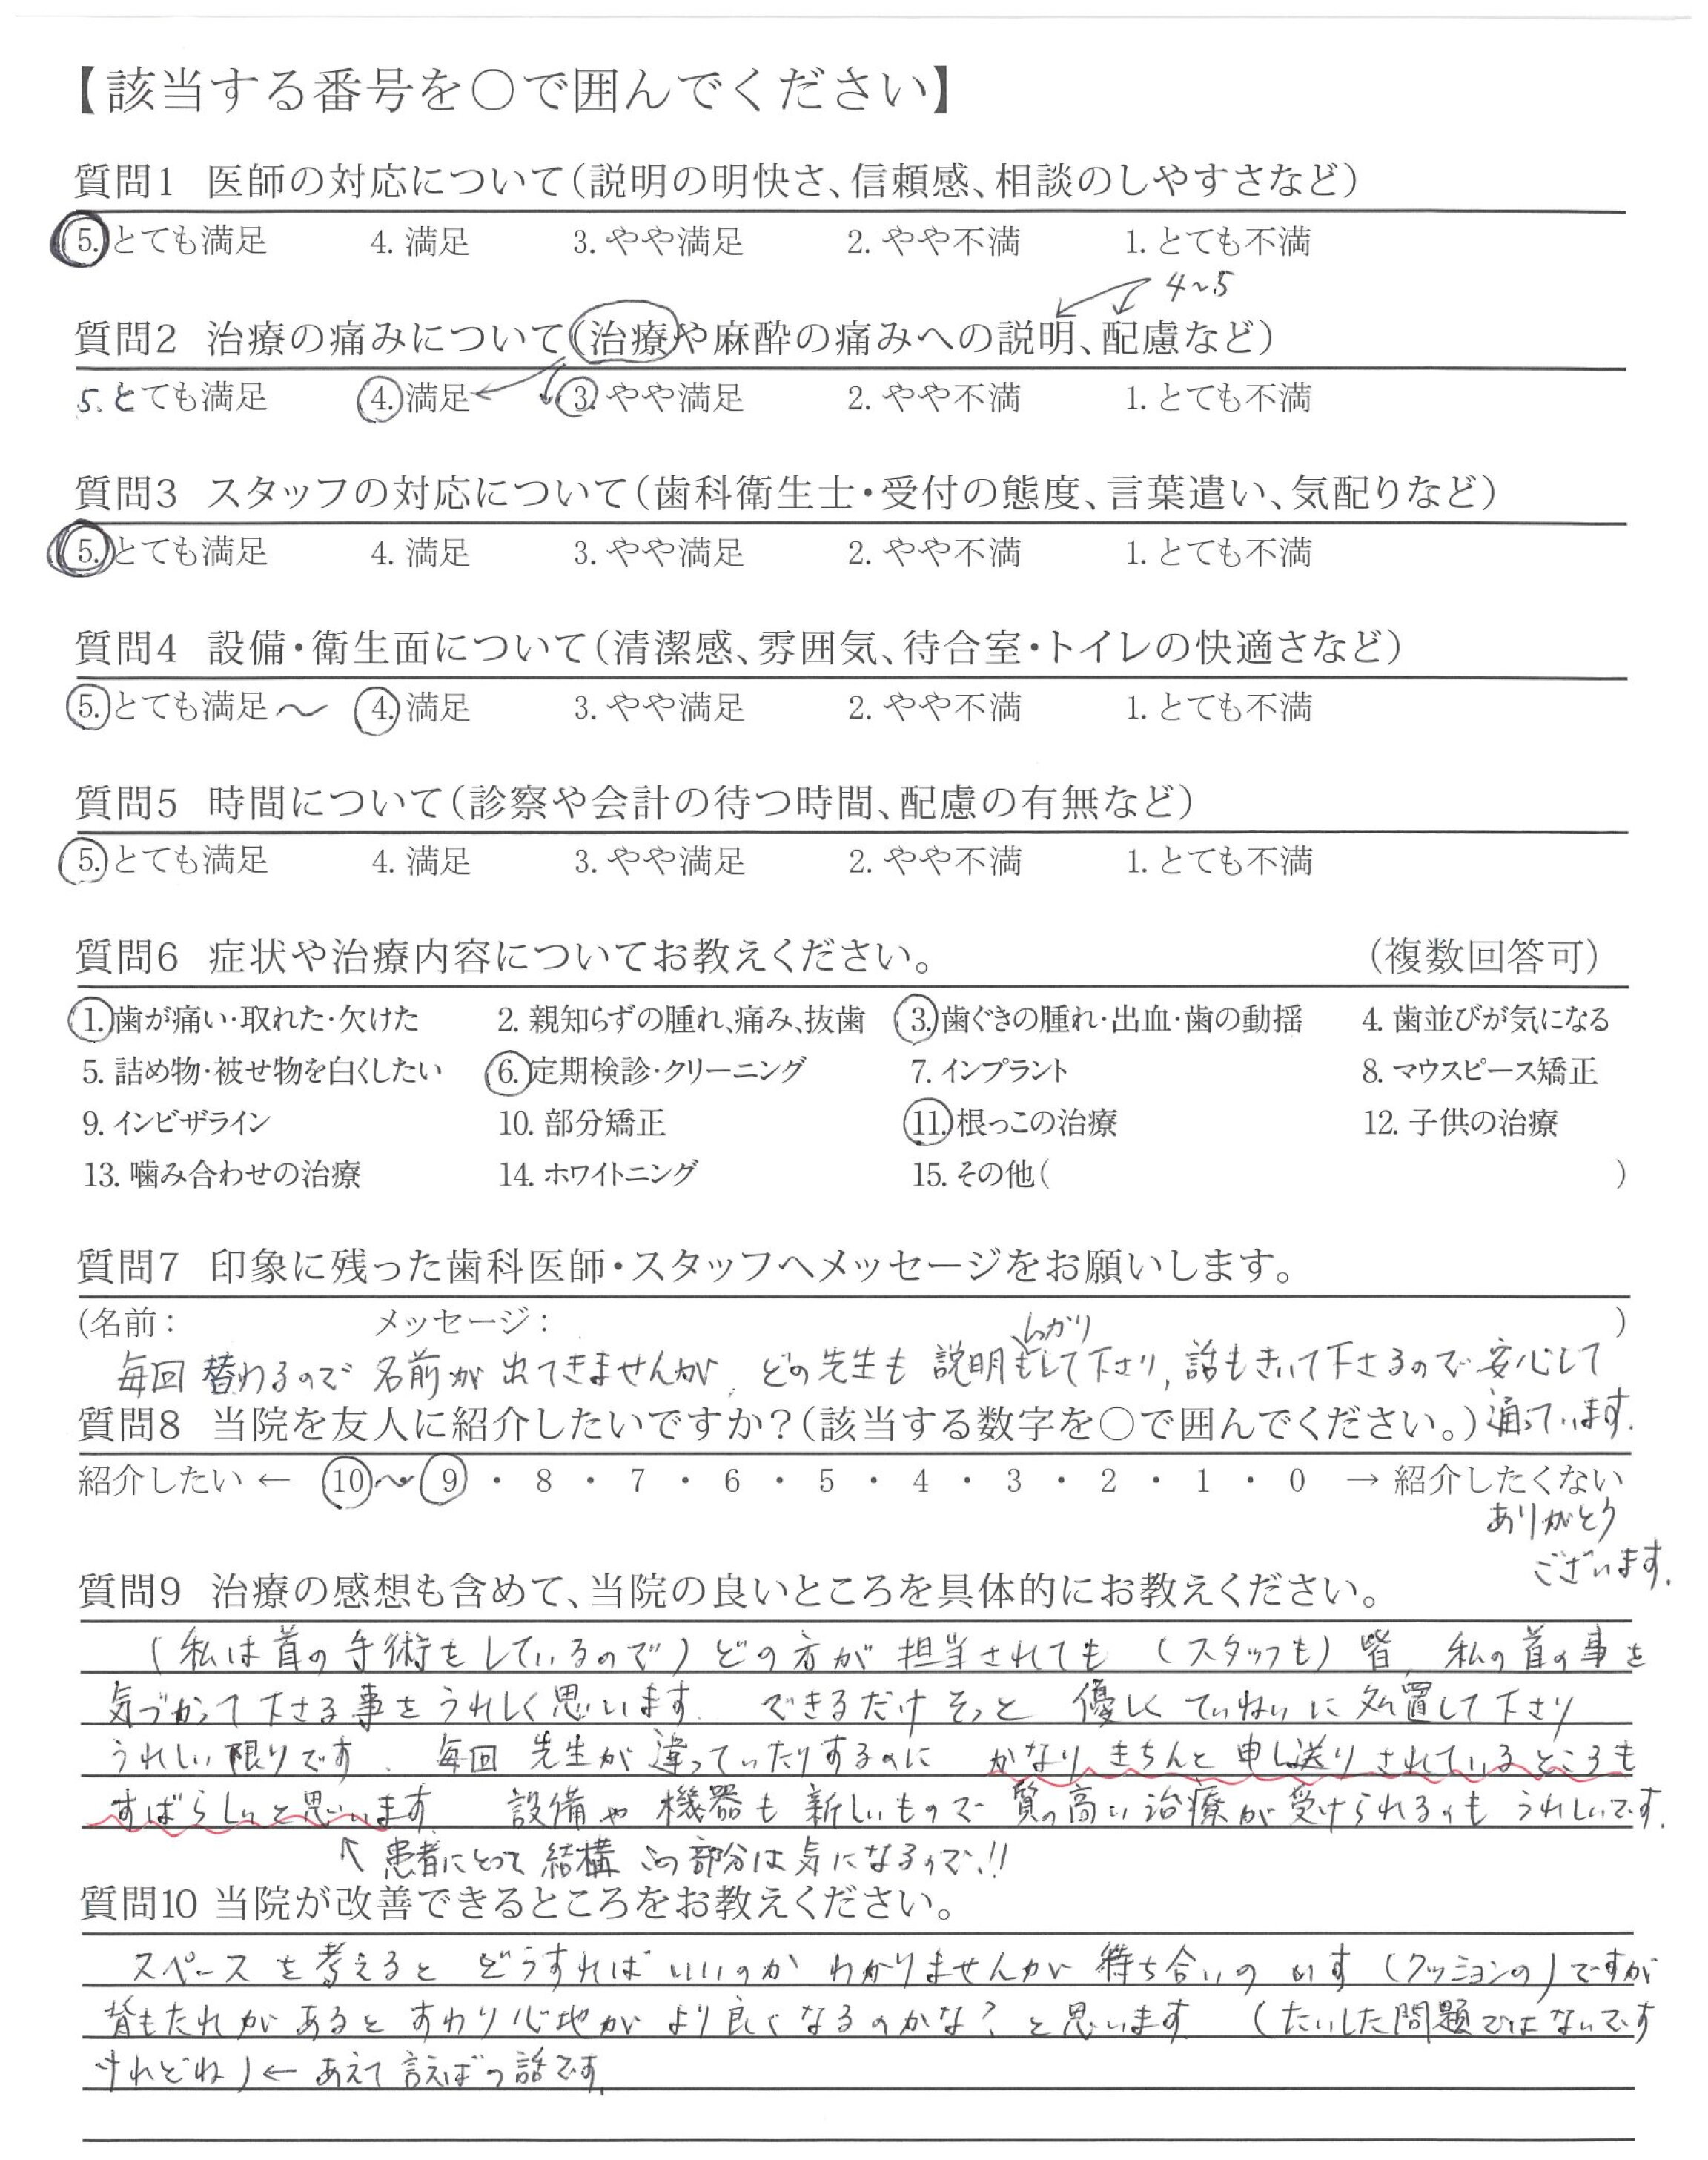 【該当する番号を○で囲んでください】
質問1 医師の対応について(説明の明快さ、信頼感、相談のしやすさなど)
5. とても満足 4. 満足 3. やや満足 2. やや不満 1. とても不満
4~5
質問2 治療の痛みについて(治療や麻酔の痛みへの説明、配慮など)
5. とても満足 4. 満足 3. やや満足 2. やや不満 1. とても不満
質問3 スタッフの対応について(歯科衛生士・受付の態度、言葉遣い、気配りなど)
5. とても満足 4. 満足 3. やや満足 2. やや不満 1. とても不満
質問4 設備・衛生面について(清潔感、雰囲気、待合室・トイレの快適さなど)
5. とても満足 ~ 4. 満足 3. やや満足 2. やや不満 1. とても不満
質問5 時間について(診察や会計の待つ時間、配慮の有無など)
5. とても満足 4. 満足 3. やや満足 2. やや不満 1. とても不満
質問6 症状や治療内容についてお教えください。 (複数回答可)
1. 歯が痛い・取れた・欠けた 2. 親知らずの腫れ、痛み、抜歯 3. 歯ぐきの腫れ・出血・歯の動揺 4. 歯並びが気になる
5. 詰め物・被せ物を白くしたい 6. 定期検診・クリーニング 7. インプラント 8. マウスピース矯正
9. インビザライン 10. 部分矯正 11. 根っこの治療 12. 子供の治療
13. 噛み合わせの治療 14. ホワイトニング 15. その他( )
質問7 印象に残った歯科医師・スタッフへメッセージをお願いします。
(名前: メッセージ: )
しっかり
毎回 替わるので 名前が 出てきませんが、どの先生も 説明もして下さり、話もきいて下さるので 安心して
通っています.
質問8 当院を友人に紹介したいですか?(該当する数字を○で囲んでください。)
紹介したい ← 10 ~ 9 ・ 8 ・ 7 ・ 6 ・ 5 ・ 4 ・ 3 ・ 2 ・ 1 ・ 0 → 紹介したくない
ありがとう
ございます.
質問9 治療の感想も含めて、当院の良いところを具体的にお教えください。
(私は首の手術をしているので) どの方が 担当されても (スタッフも) 皆、私の首の事を
気づかって下さる事をうれしく思います. できるだけそっと 優しく ていねいに 処置して下さり
うれしい限りです. 毎回 先生が 違っていたりするのに かなり、きちんと 申し送りされているところも
すばらしいと思います. 設備や 機器も 新しいもので 質の高い 治療が受けられるのも うれしいです.
↑ 患者にとって 結構 この部分は気になるので!!
質問10 当院が改善できるところをお教えください。
スペースを考えると どうすればいいのか わかりませんが 待ち合いの いす (クッションの) ですが
背もたれがあると すわり心地が より良くなるのかな? と思います. (たいした問題ではないです
けれどね) ← あえて 言えばの話です.